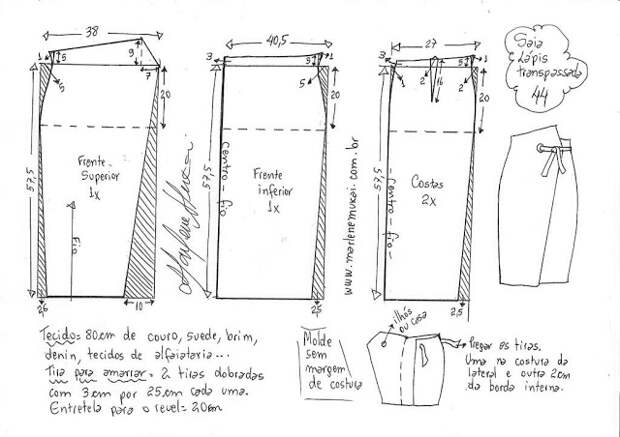 38
40,5
27
Saia
Lápis
transpassada
44
1
5
9
7
5
3
5
1
5
3
2
16
5
1
2
20
20
20
57,5
57,5
57,5
Frente
Superior
1x
Fio
centro - fio
Frente
inferior
1x
- Centro - fio -
Costas
2x
Marlene Mukai
www.marlenemukai.com.br
26
10
25
2,5
Tecido = 80cm de couro, suede, brim,
denin, tecidos de alfaiataria...
Tira para amarrar = 2 tiras dobradas
com 3cm por 25cm cada uma.
Entretela para o revel = 20cm
Molde
sem
margem
de costura
ilhós
ou casa
Pregar as tiras.
Uma na costura da
lateral e outra 2cm
da borda interna.